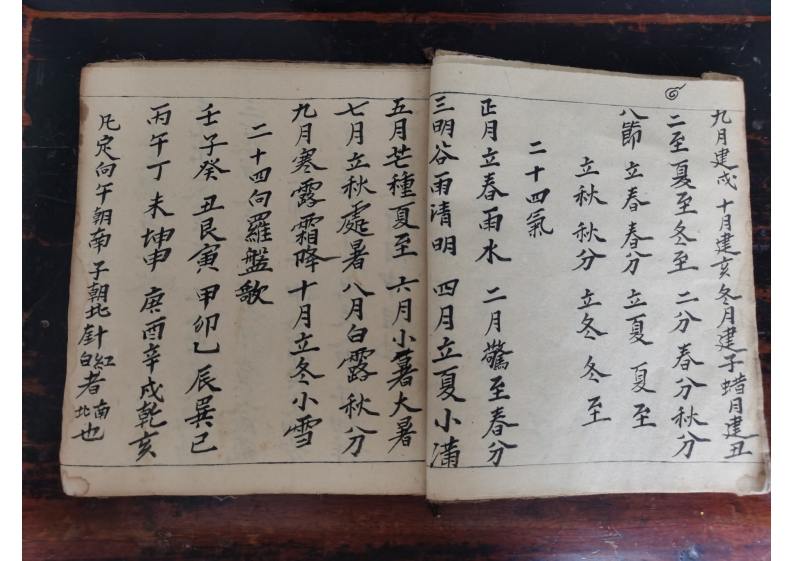 九月建戌 十月建亥 冬月建子 蜡月建丑
二至 夏至 冬至 二分 春分 秋分
八節 立春 春分 立夏 夏至
立秋 秋分 立冬 冬至
二十四氣
正月立春雨水 二月驚至春分
三明谷雨清明 四月立夏小滿
五月芒種夏至 六月小暑大暑
七月立秋處暑 八月白露秋分
九月寒露霜降 十月立冬小雪
二十四向羅盤歌
壬子癸 丑艮寅 甲卯乙 辰巽已
丙午丁 未坤申 庚酉辛 戌乾亥
凡定向午朝南 子朝北 針紅者南白北也